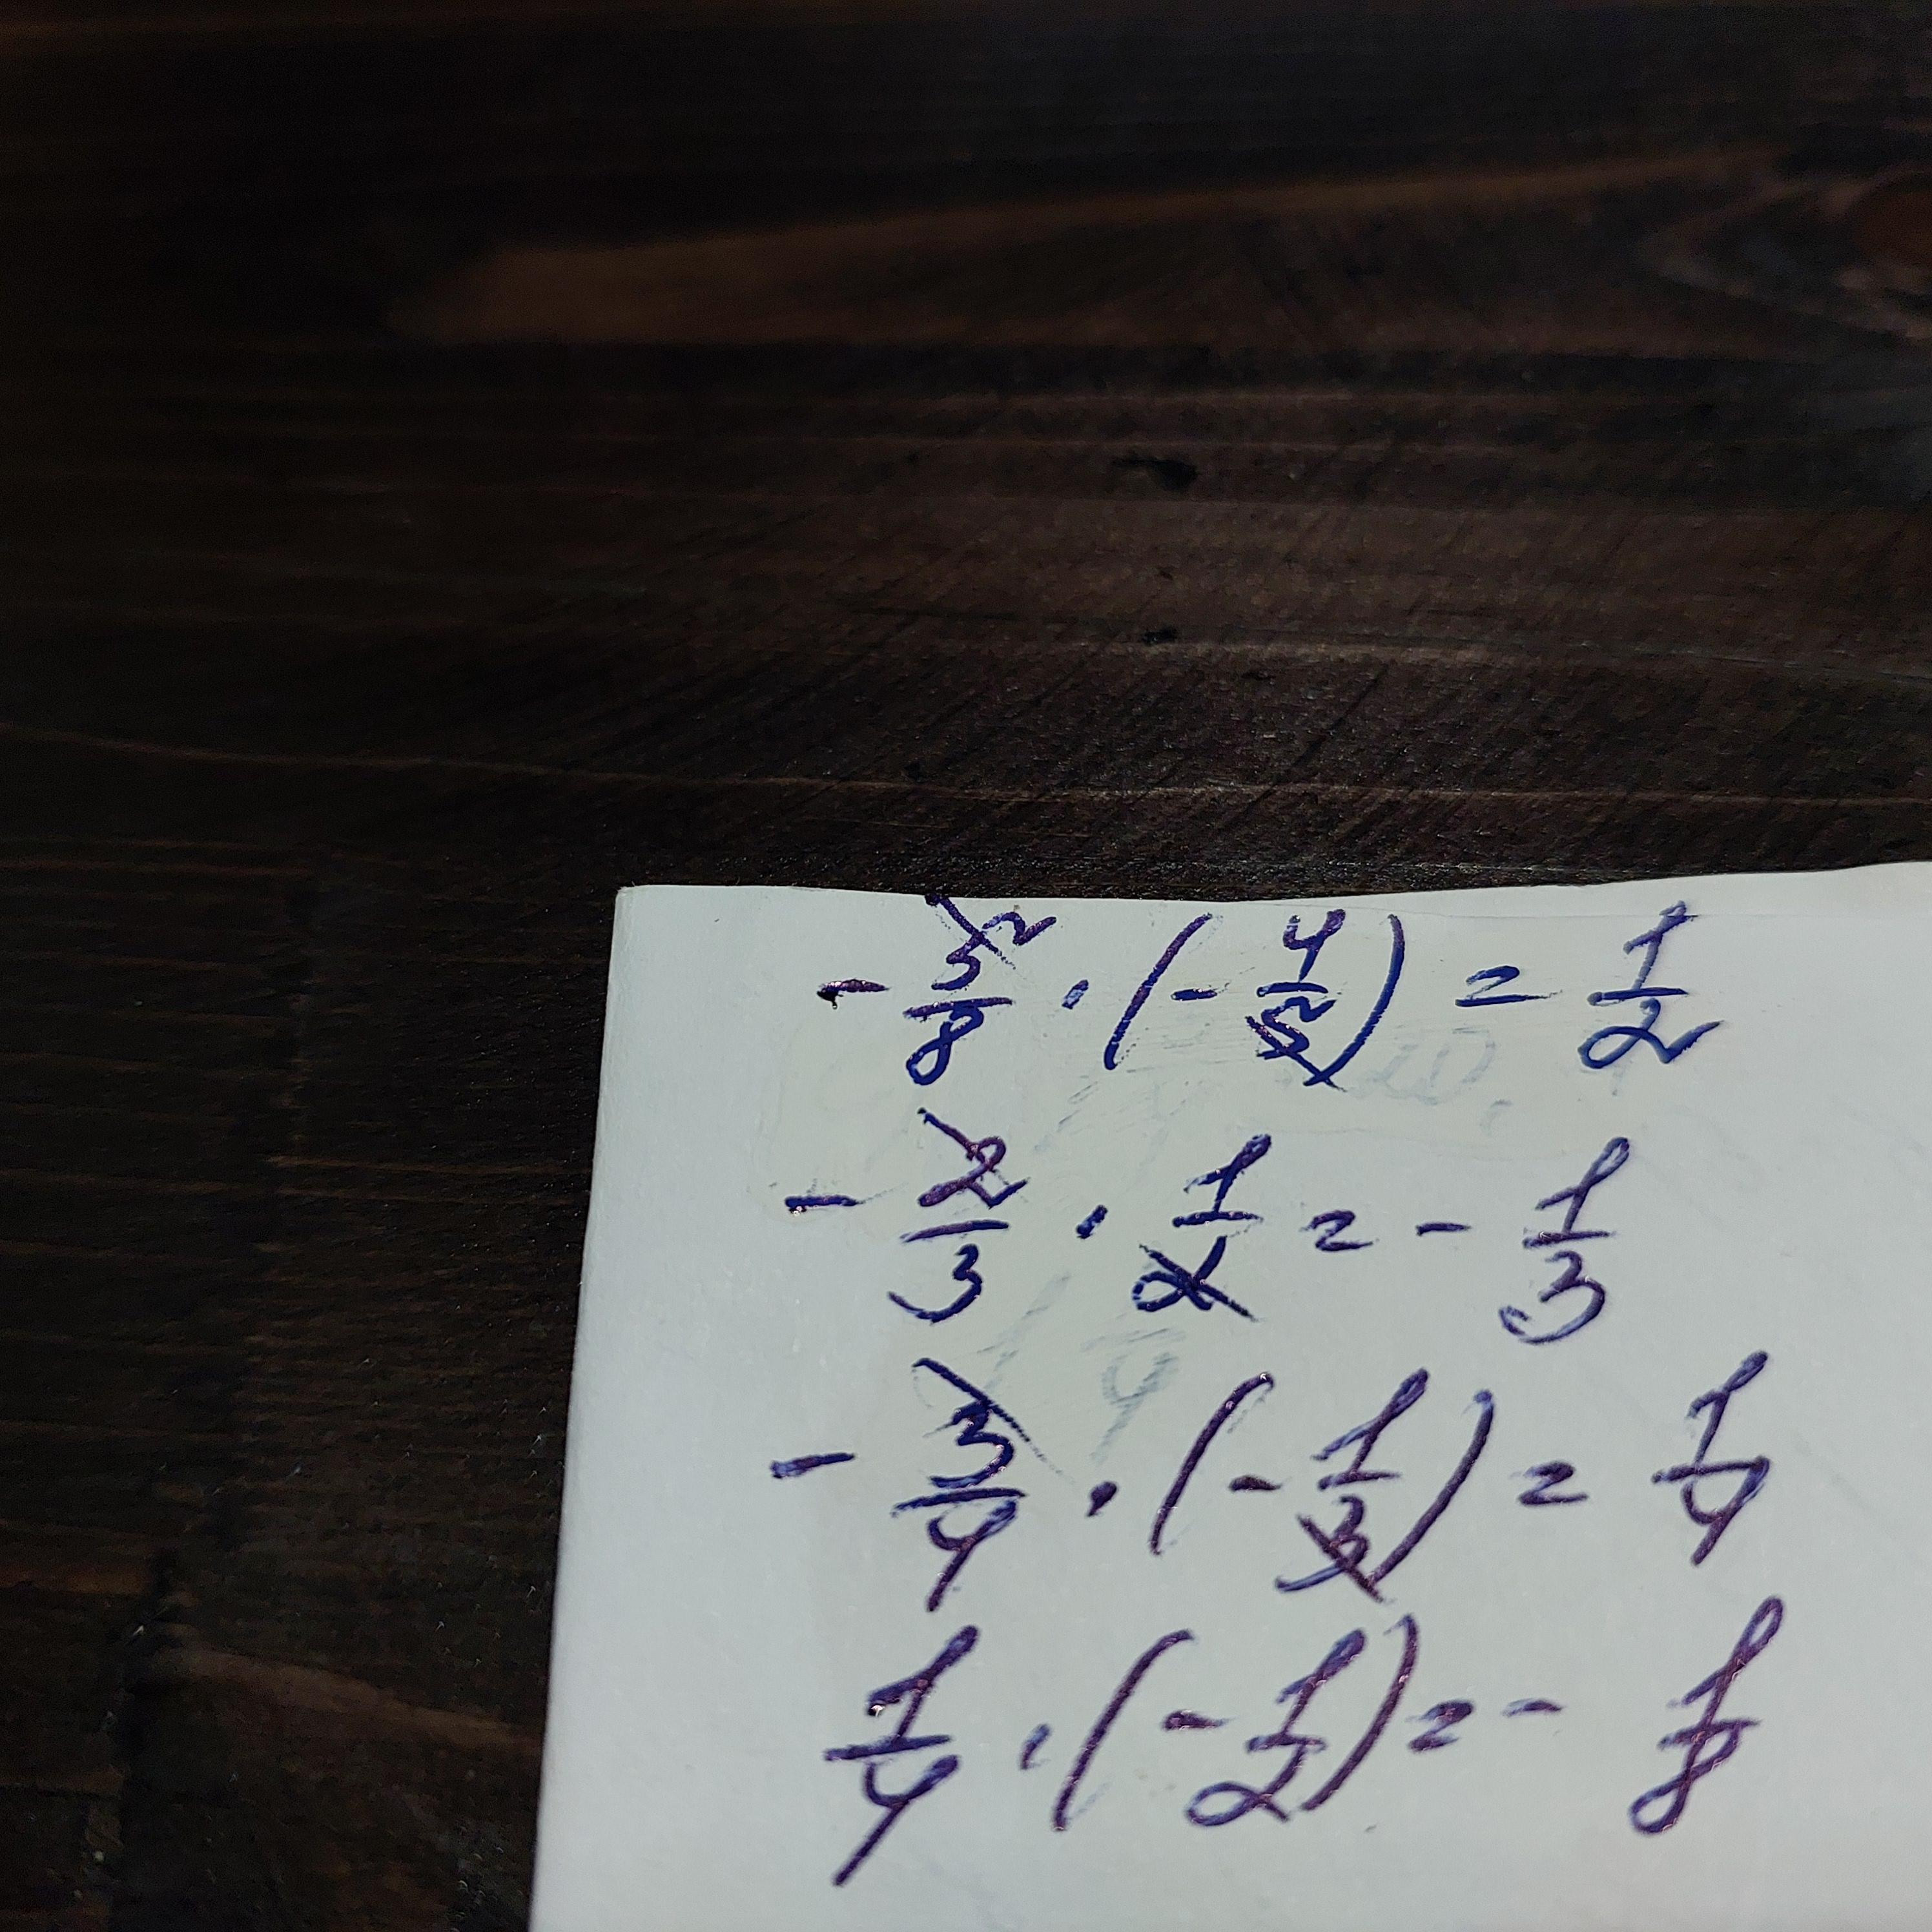 - 5/8 · (- 4/5) = 1/2
- 2/3 · 1/2 = - 1/3
- 3/4 · (- 1/3) = 1/4
1/4 · (- 1/2) = - 1/8